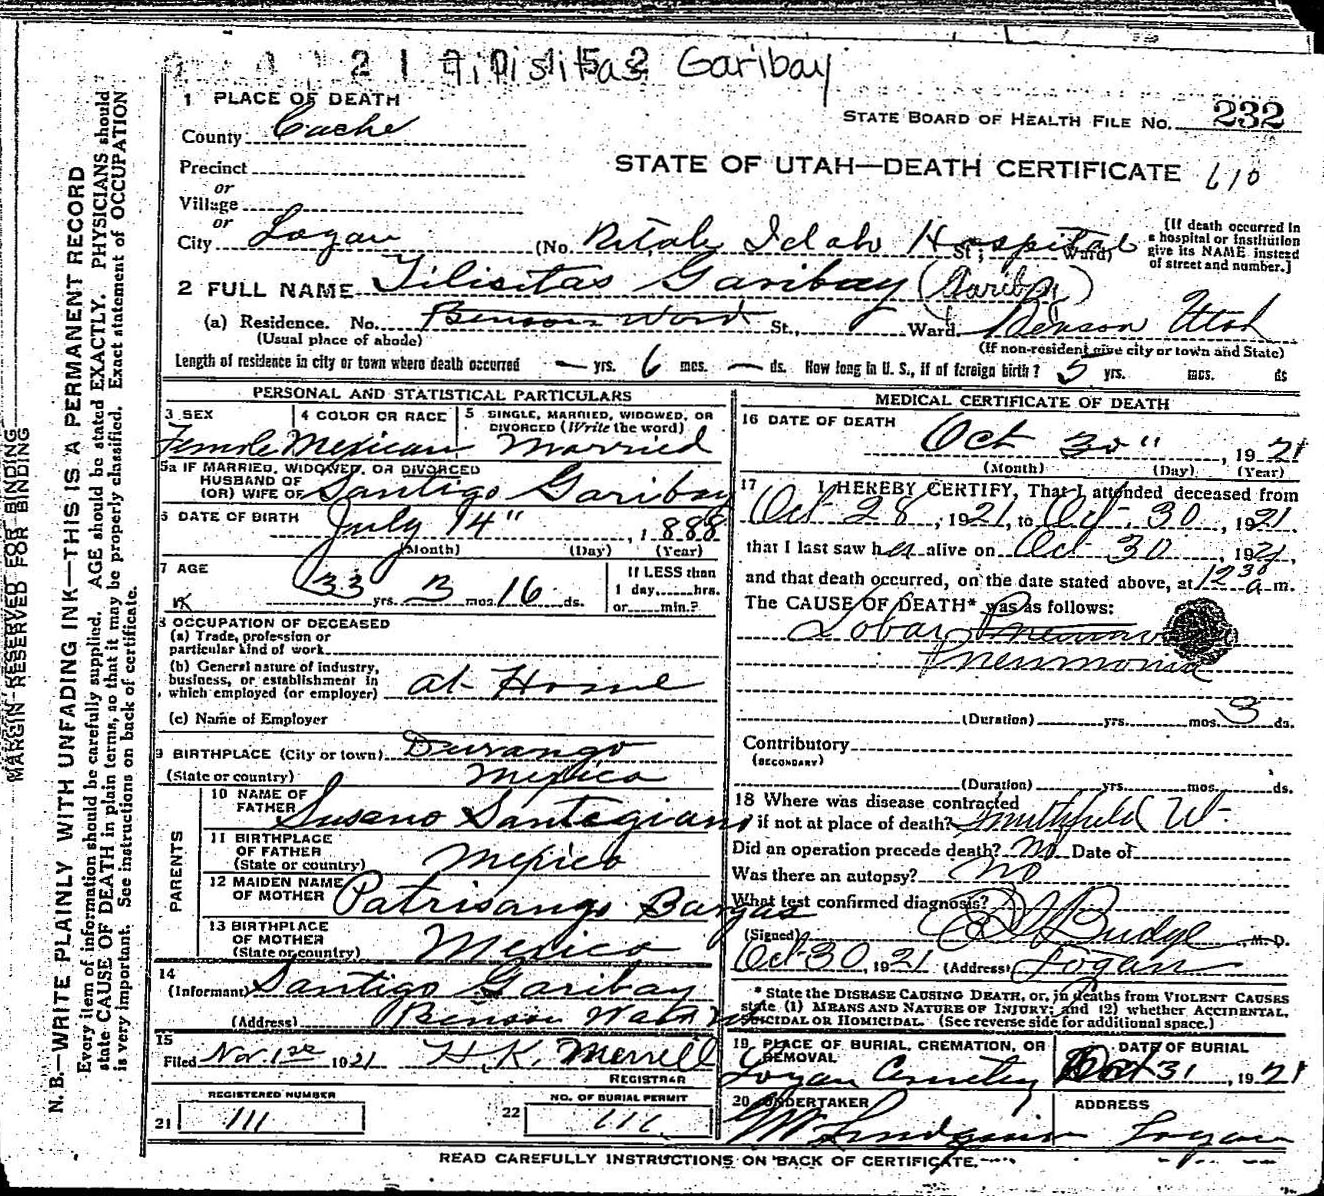 Filisitas Garibay
1 PLACE OF DEATH
County Cache
STATE BOARD OF HEALTH FILE No. 232
Precinct
STATE OF UTAH—DEATH CERTIFICATE 610
or
Village
or
City Logan (No. Idaho Hospital St.; Ward)
[If death occurred in a hospital or institution give its NAME instead of street and number.]
2 FULL NAME Filisitas Garibay
(a) Residence. No. Benson Ward St., Ward. Benson Utah
(Usual place of abode) (If non-resident give city or town and State)
Length of residence in city or town where death occurred — yrs. 6 mos. — ds. How long in U. S., if of foreign birth? 5 yrs. mos. ds
PERSONAL AND STATISTICAL PARTICULARS
3 SEX Female
4 COLOR OR RACE Mexican
5 SINGLE, MARRIED, WIDOWED, OR DIVORCED (Write the word) Married
5a IF MARRIED, WIDOWED, OR DIVORCED
HUSBAND OF
(OR) WIFE OF Santigo Garibay
6 DATE OF BIRTH July 14", 1888
(Month) (Day) (Year)
7 AGE 33 yrs. 3 mos. 16 ds.
If LESS than
1 day,......hrs.
or......min.?
8 OCCUPATION OF DECEASED
(a) Trade, profession or
particular kind of work
(b) General nature of industry,
business, or establishment in
which employed (or employer) at Home
(c) Name of Employer
9 BIRTHPLACE (City or town) Durango
(State or country) Mexico
PARENTS
10 NAME OF
FATHER Suseno
11 BIRTHPLACE
OF FATHER
(State or country) Mexico
12 MAIDEN NAME
OF MOTHER Patrisango Bargas
13 BIRTHPLACE
OF MOTHER
(State or country) Mexico
14
(Informant) Santigo Garibay
(Address) Benson Ward
15
Filed Nov. 1st 1921 H.K. Merrell
REGISTRAR
REGISTERED NUMBER
21 111
NO. OF BURIAL PERMIT
22 111
MEDICAL CERTIFICATE OF DEATH
16 DATE OF DEATH Oct 30", 1921
(Month) (Day) (Year)
17 I HEREBY CERTIFY, That I attended deceased from
Oct 28, 1921, to Oct. 30, 1921
that I last saw her alive on Oct 30, 1921,
and that death occurred, on the date stated above, at 12 30 a m.
The CAUSE OF DEATH* was as follows:
Lobar
Pneumonia
(Duration) yrs. mos. 3 ds.
Contributory
(SECONDARY)
(Duration) yrs. mos. ds.
18 Where was disease contracted
if not at place of death? Smithfield Ut.
Did an operation precede death? No Date of
Was there an autopsy? No
What test confirmed diagnosis?
(Signed) Budge M. D.
Oct 30, 1921 (Address) Logan
* State the DISEASE CAUSING DEATH, or, in deaths from VIOLENT CAUSES
state (1) MEANS AND NATURE OF INJURY; and (2) whether ACCIDENTAL,
SUICIDAL OR HOMICIDAL. (See reverse side for additional space.)
19 PLACE OF BURIAL, CREMATION, OR
REMOVAL
Logan Cemetery
DATE OF BURIAL
Oct 31, 1921
20 UNDERTAKER
ADDRESS
Logan
READ CAREFULLY INSTRUCTIONS ON BACK OF CERTIFICATE.
MARGIN RESERVED FOR BINDING
MARGIN RESERVED FOR BINDING
N. B.—WRITE PLAINLY WITH UNFADING INK—THIS IS A PERMANENT RECORD
Every item of information should be carefully supplied. AGE should be stated EXACTLY. PHYSICIANS should
state CAUSE OF DEATH in plain terms, so that it may be properly classified. Exact statement of OCCUPATION
is very important. See instructions on back of certificate.